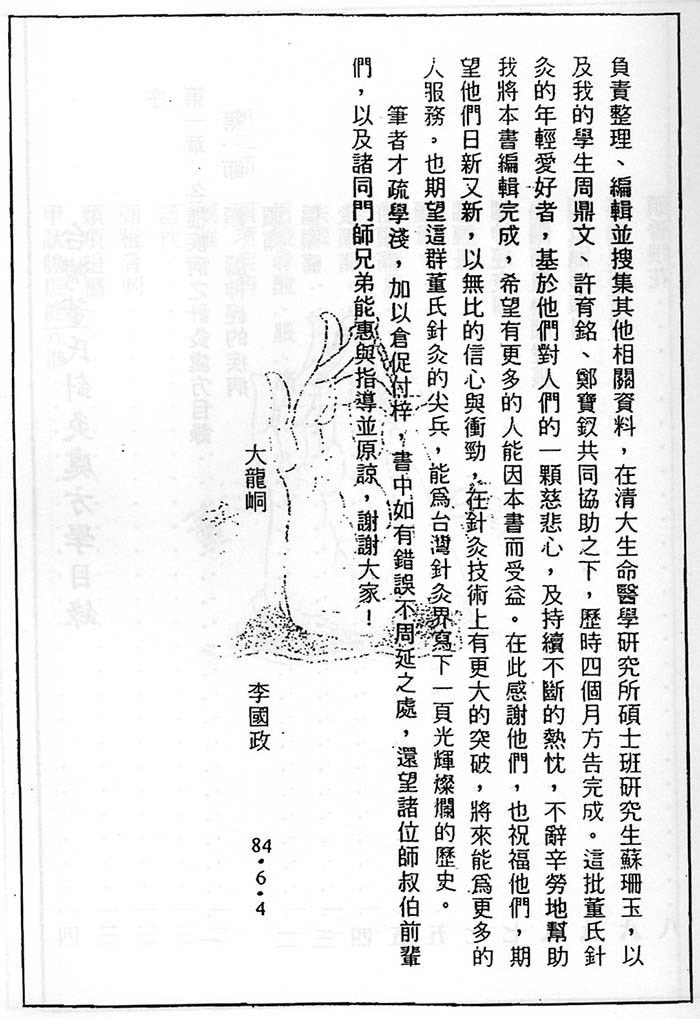 負責整理、編輯並搜集其他相關資料，在清大生命醫學研究所碩士班研究生蘇珊玉，以
及我的學生周鼎文、許育銘、鄭寶釵共同協助之下，歷時四個月方告完成。這批董氏針
灸的年輕愛好者，基於他們對人們的一顆慈悲心，及持續不斷的熱忱，不辭辛勞地幫助
我將本書編輯完成，希望有更多的人能因本書而受益。在此感謝他們，也祝福他們，期
望他們日新又新，以無比的信心與衝勁，在針灸技術上有更大的突破，將來能為更多的
人服務。也期望這群董氏針灸的尖兵，能為台灣針灸界寫下一頁光輝燦爛的歷史。
筆者才疏學淺，加以倉促付梓，書中如有錯誤不周延之處，還望諸位師叔伯前輩
們，以及諸同門師兄弟能惠與指導並原諒，謝謝大家！
大龍峒 李國政 84.6.4